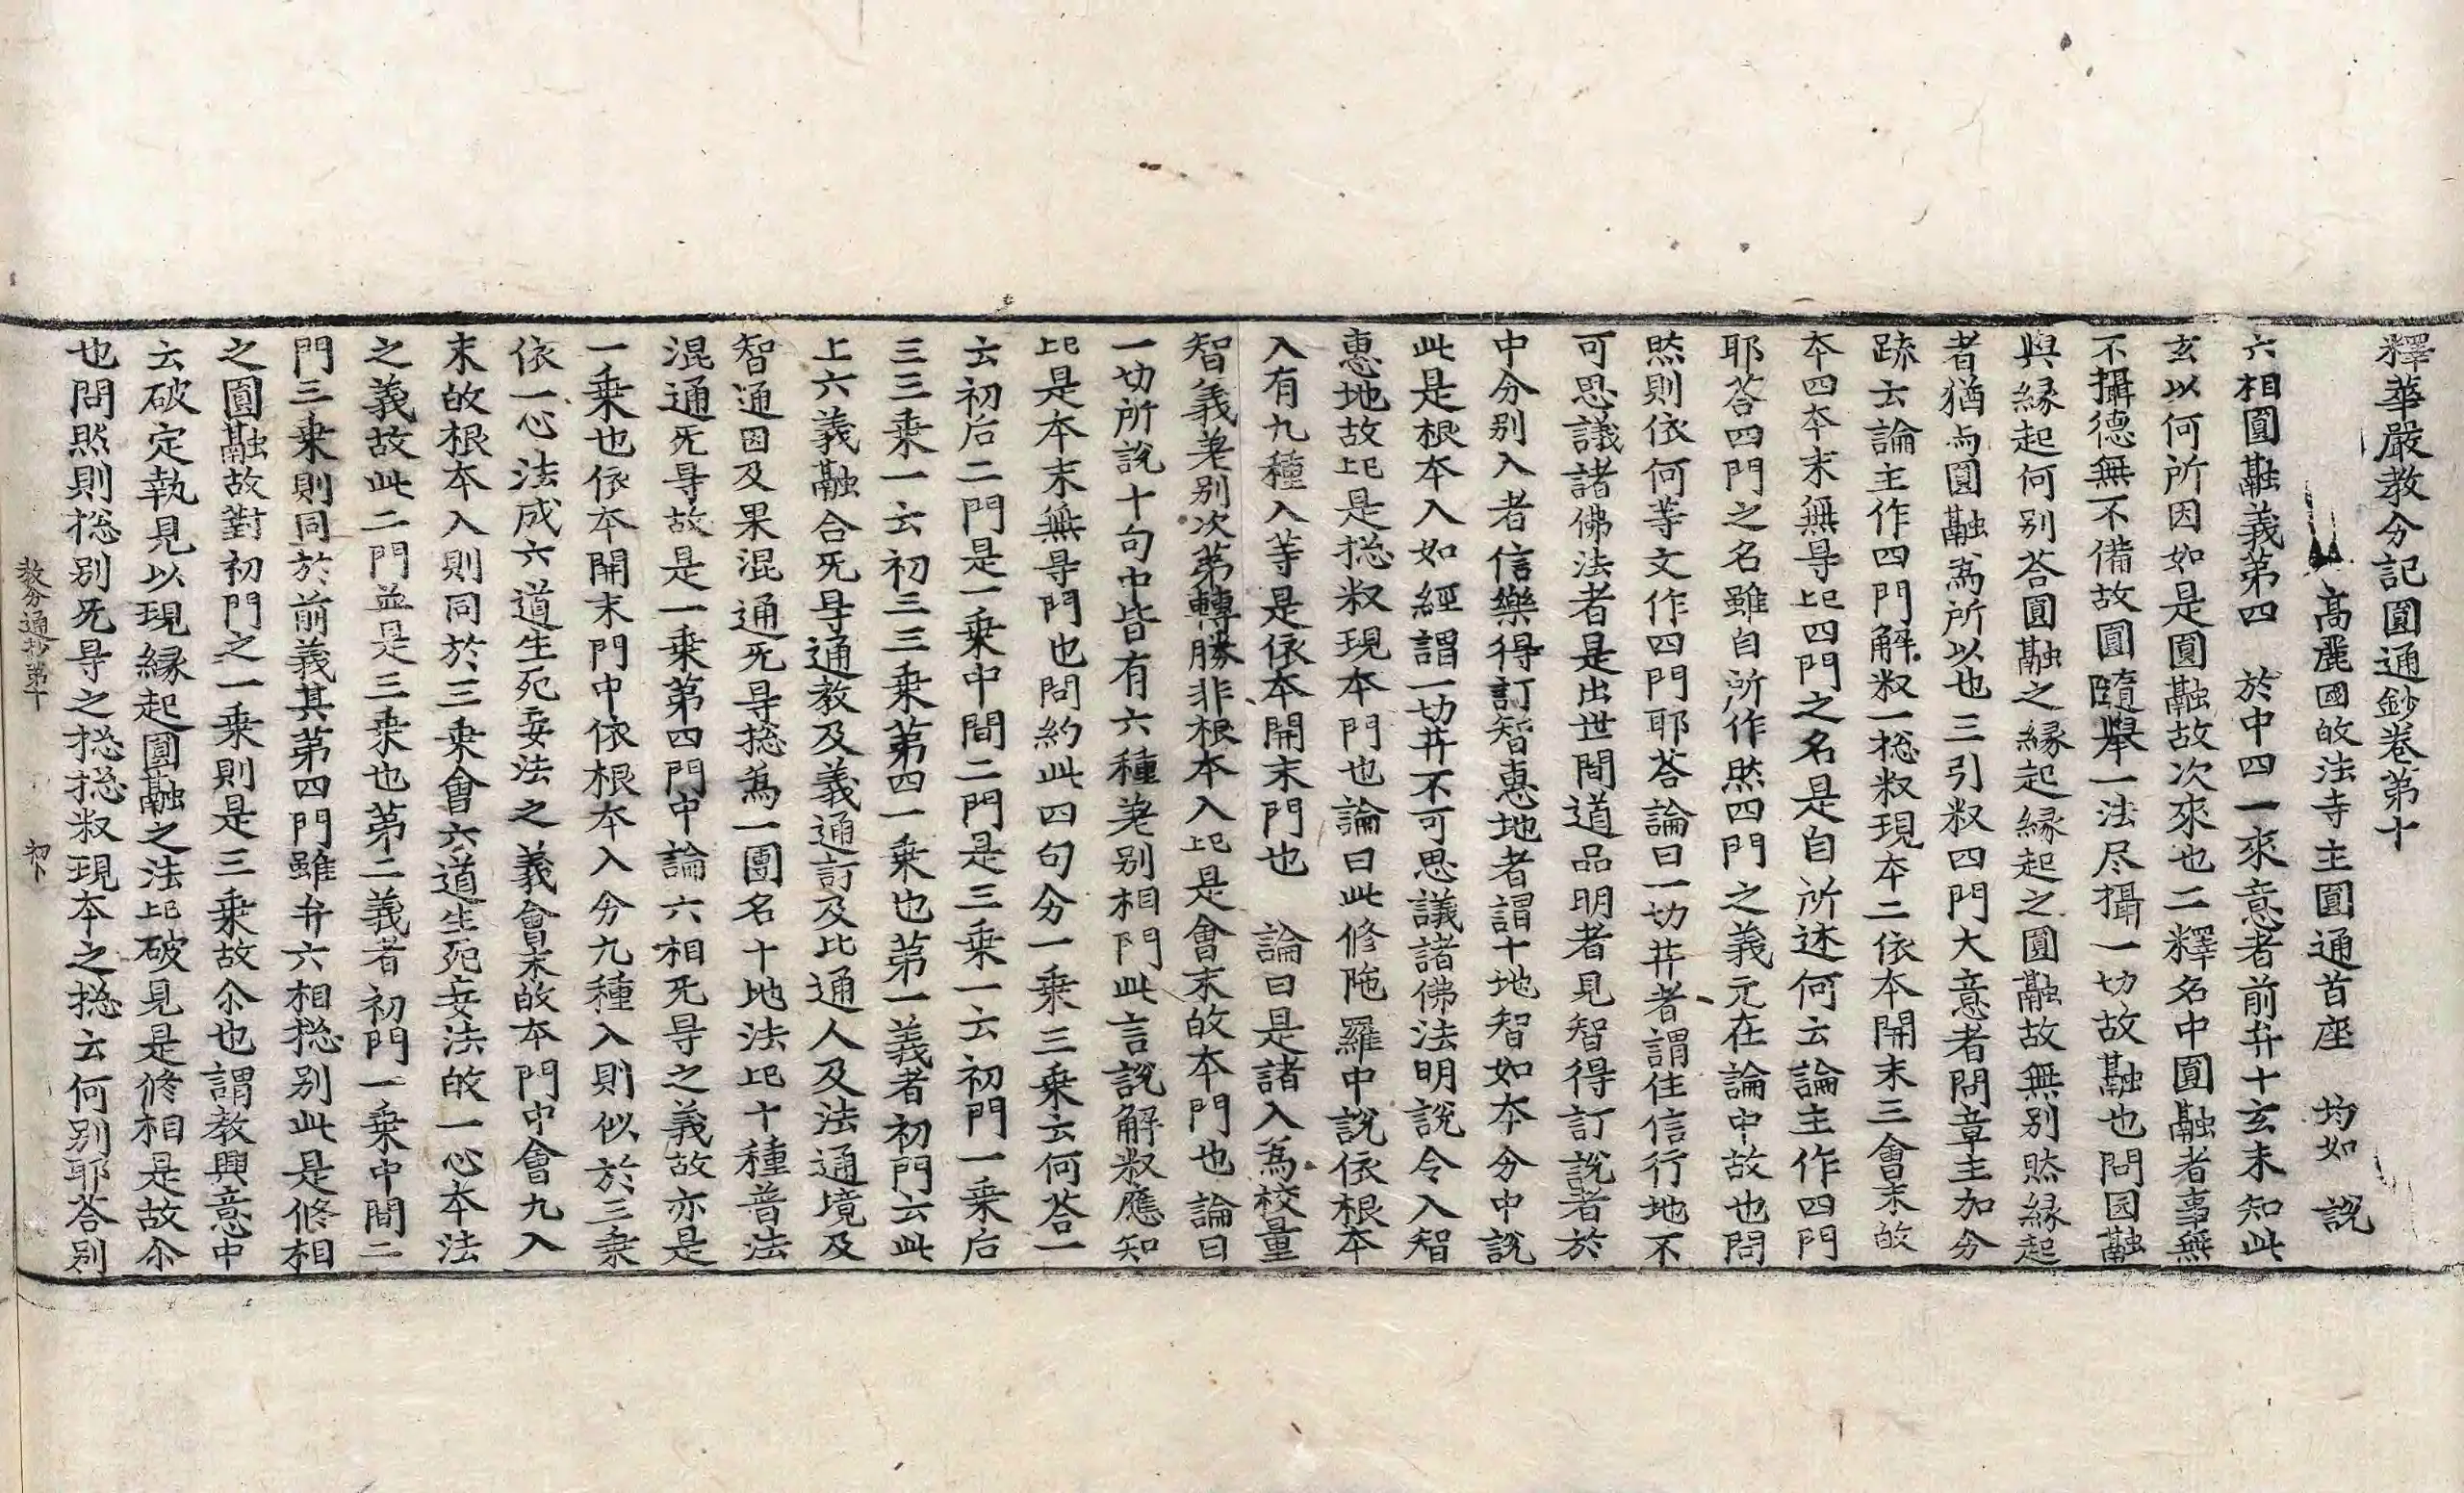 釋華嚴教分記圓通鈔卷第十
高麗國㱕法寺主圓通首座　均如　說
六相圓融義第四　於中四一來意者前弁十玄未知此
玄以何所因如是圓融故次來也二釋名中圓融者事無
不攝德無不備故圓隨舉一法尽攝一切故融也問圓融
與緣起何別荅圓融之緣起緣起之圓融故無別然緣起
者猶与圓融爲所以也三引釈四門大意者問章主加分
䟽云論主作四門解釈一揔釈現本二依本開末三會末㱕
本四本末無㝵此四門之名是自所述何云論主作四門
耶荅四門之名雖自所作然四門之義元在論中故也問
然則依何等文作四門耶荅論曰一切𦬇者謂住信行地不
可思議諸佛法者是出世間道品明者見智得訂說者於
中分別入者信樂得訂智惠地者謂十地智如本分中說
此是根本入如經謂一切𦬇不可思議諸佛法明說令入智
惠地故此是揔釈現本門也論曰此修陁羅中說依根本
入有九種入等是依本開末門也　論曰是諸入爲校量
智義差別次第轉勝非根本入此是會末㱕本門也論曰
一切所說十句中皆有六種差別相門此言說解釈應知
此是本末無㝵門也問約此四句分一乗三乗云何荅一
云初后二門是一乗中間二門是三乗一云初門一乗后
三三乗一云初三三乗第四一乗也第一義者初門云此
上六義融合无㝵通教及義通訂及比通人及法通境及
智通因及果混通无㝵揔爲一團名十地法此十種普法
混通无㝵故是一乗第四門中論六相无㝵之義故亦是
一乗也依本開末門中依根本入分九種入則似於三乗
依一心法成六道生死妄法之義會末㱕本門中會九入
末㱕根本入則同於三乗會六道生死妄法㱕一心本法
之義故此二門並是三乗也第二義者初門一乗中間二
門三乗則同於前義其第四門雖弁六相揔別此是修相
之圓融故對初門之一乗則是三乗故尒也謂教興意中
云破定執見以現緣起圓融之法此破見是修相是故尒
也問然則揔別无㝵之揔揔釈現本之揔云何別耶荅別
教分通抄第十　初下